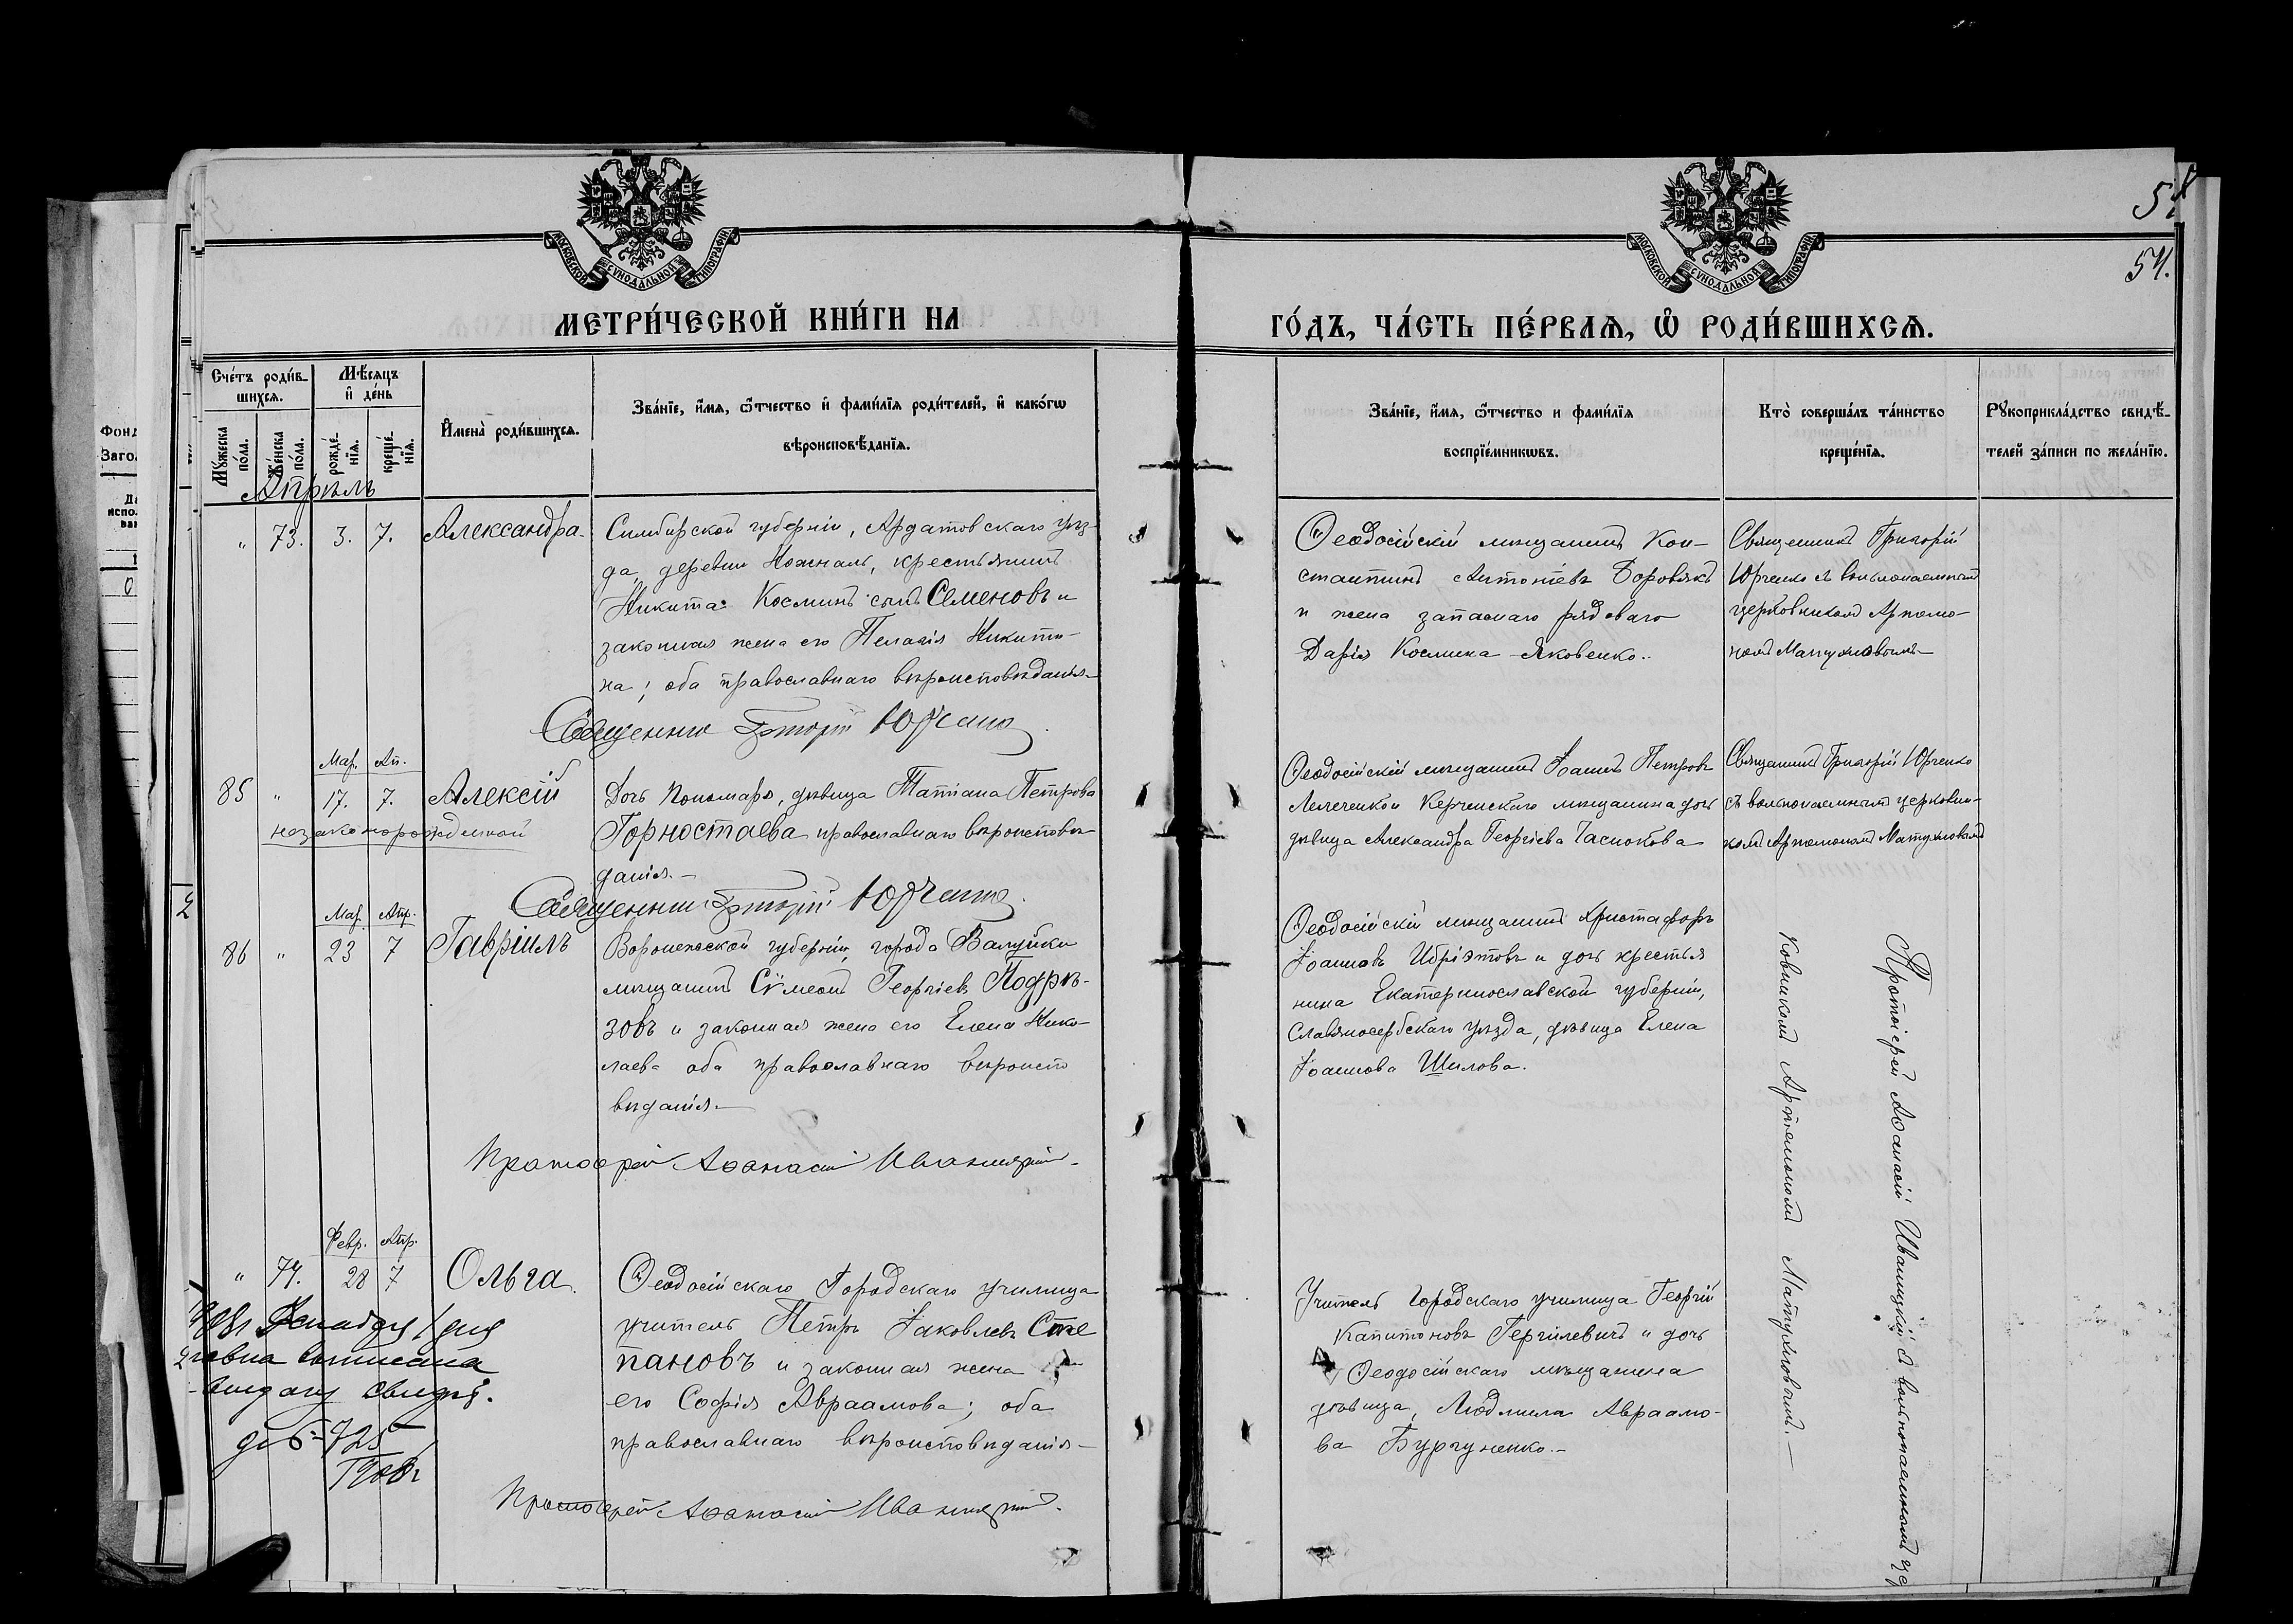 54
54.
МОСКОВСКОЙ СУНОДАЛЬНОЙ ТИПОГРАФІИ
МОСКОВСКОЙ СУНОДАЛЬНОЙ ТИПОГРАФІИ
МЕТРИ́ЧЕСКОЙ КНИ́ГИ НА
ГО́ДЪ, ЧА́СТЬ ПЕ́РВАѦ, Ѡ҆ РОДИ́ВШИХСѦ.
Счётъ роди́в-
шихсѧ.
Мѣ́сѧцъ
и҆ де́нь
И҆мена̀ роди́вшихсѧ.
Зва́нїе, и҆́мѧ, ѻ҆́тчество и҆ фами́лїѧ роди́телей, и҆ како́гѡ
вѣроисповѣ́данїѧ.
Мꙋ́жеска
по́ла.
Же́нска
по́ла.
рожде́-
нїѧ.
креще́-
нїѧ.
Зва́нїе, и҆́мѧ, ѻ҆́тчество и фами́лїѧ
воспрїе́мникѡвъ.
Кто̀ соверша́лъ та́инство
креще́нїѧ.
Рꙋкоприкла́дство свидѣ́-
телей за́писи по жела́нїю.
Фонд
Апрѣль
" 73. 3. 7. Александра
Симбирской губерніи, Ардатовскаго уѣз-
да, деревни крестьянинъ
Никита Косминъ сынъ Семеновъ и
законная жена его Пелагія Никити-
на; оба православнаго вѣроисповѣданія
Священникъ Григорій Юрченко
Ѳеодосійскій мѣщанинъ Кон-
стантинъ Антоніевъ Боровякъ
и жена запаснаго рядоваго
Дарія Космина Яковенко.
Священникъ Григорій
Юрченко съ вольнонаемнымъ
церковникомъ Артемо-
номъ
Мар. Ап.
85 " 17. 7. Алексій
незаконорожденной
Дочь Пономаря, дѣвица Татіана Петрова
Горностаева православнаго вѣроисповѣ-
данія.
Священникъ Григорій Юрченко
Ѳеодосійскій мѣщанинъ Іоаннъ Петровъ
Керченскаго мѣщанина дочь
дѣвица Александра Георгіева
Священникъ Григорій Юрченко
съ вольнонаемнымъ церковни-
комъ Артемономъ
Мар. Апр.
86 " 23 7 Гавріилъ
Воронежской губерніи, города Валуйки
мѣщанинъ Сѵмеонъ Георгіевъ Подрѣ-
зовъ и законная жена его Елена Нико-
лаева оба православнаго вѣроиспо
вѣданія.
Протоіерей Аѳанасій Иваницкій
Ѳеодосійскій мѣщанинъ Христофоръ
Іоанновъ и дочь крестья
нина Екатеринославской губерніи,
Славяносербскаго уѣзда, дѣвица Елена
Іоаннова Шилова.
Протоіерей Аѳанасій Иваницкій съ вольнонаемнымъ цер
ковникомъ Артемономъ
Февр. Апр.
" 74. 28 7 Ольга
Ѳеодосійскаго Городскаго училища
учитель Петръ Іаковлевъ Сте
пановъ и законная жена
его Софія Авраамова; оба
православнаго вѣроисповѣданія
Протоіерей Аѳанасій Иваницкій
Учитель Городскаго училища Георгій
Капитоновъ и дочь
Ѳеодосійскаго мѣщанина
дѣвица, Людмила Авраамо-
ва